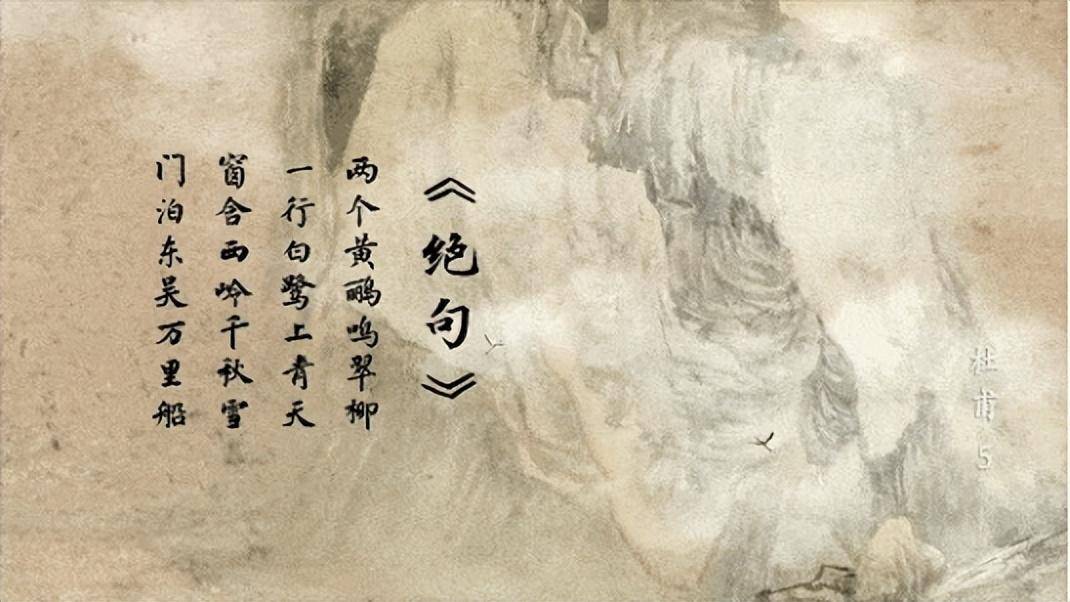 《绝句》
两个黄鹂鸣翠柳
一行白鹭上青天
窗含西岭千秋雪
门泊东吴万里船
杜甫5